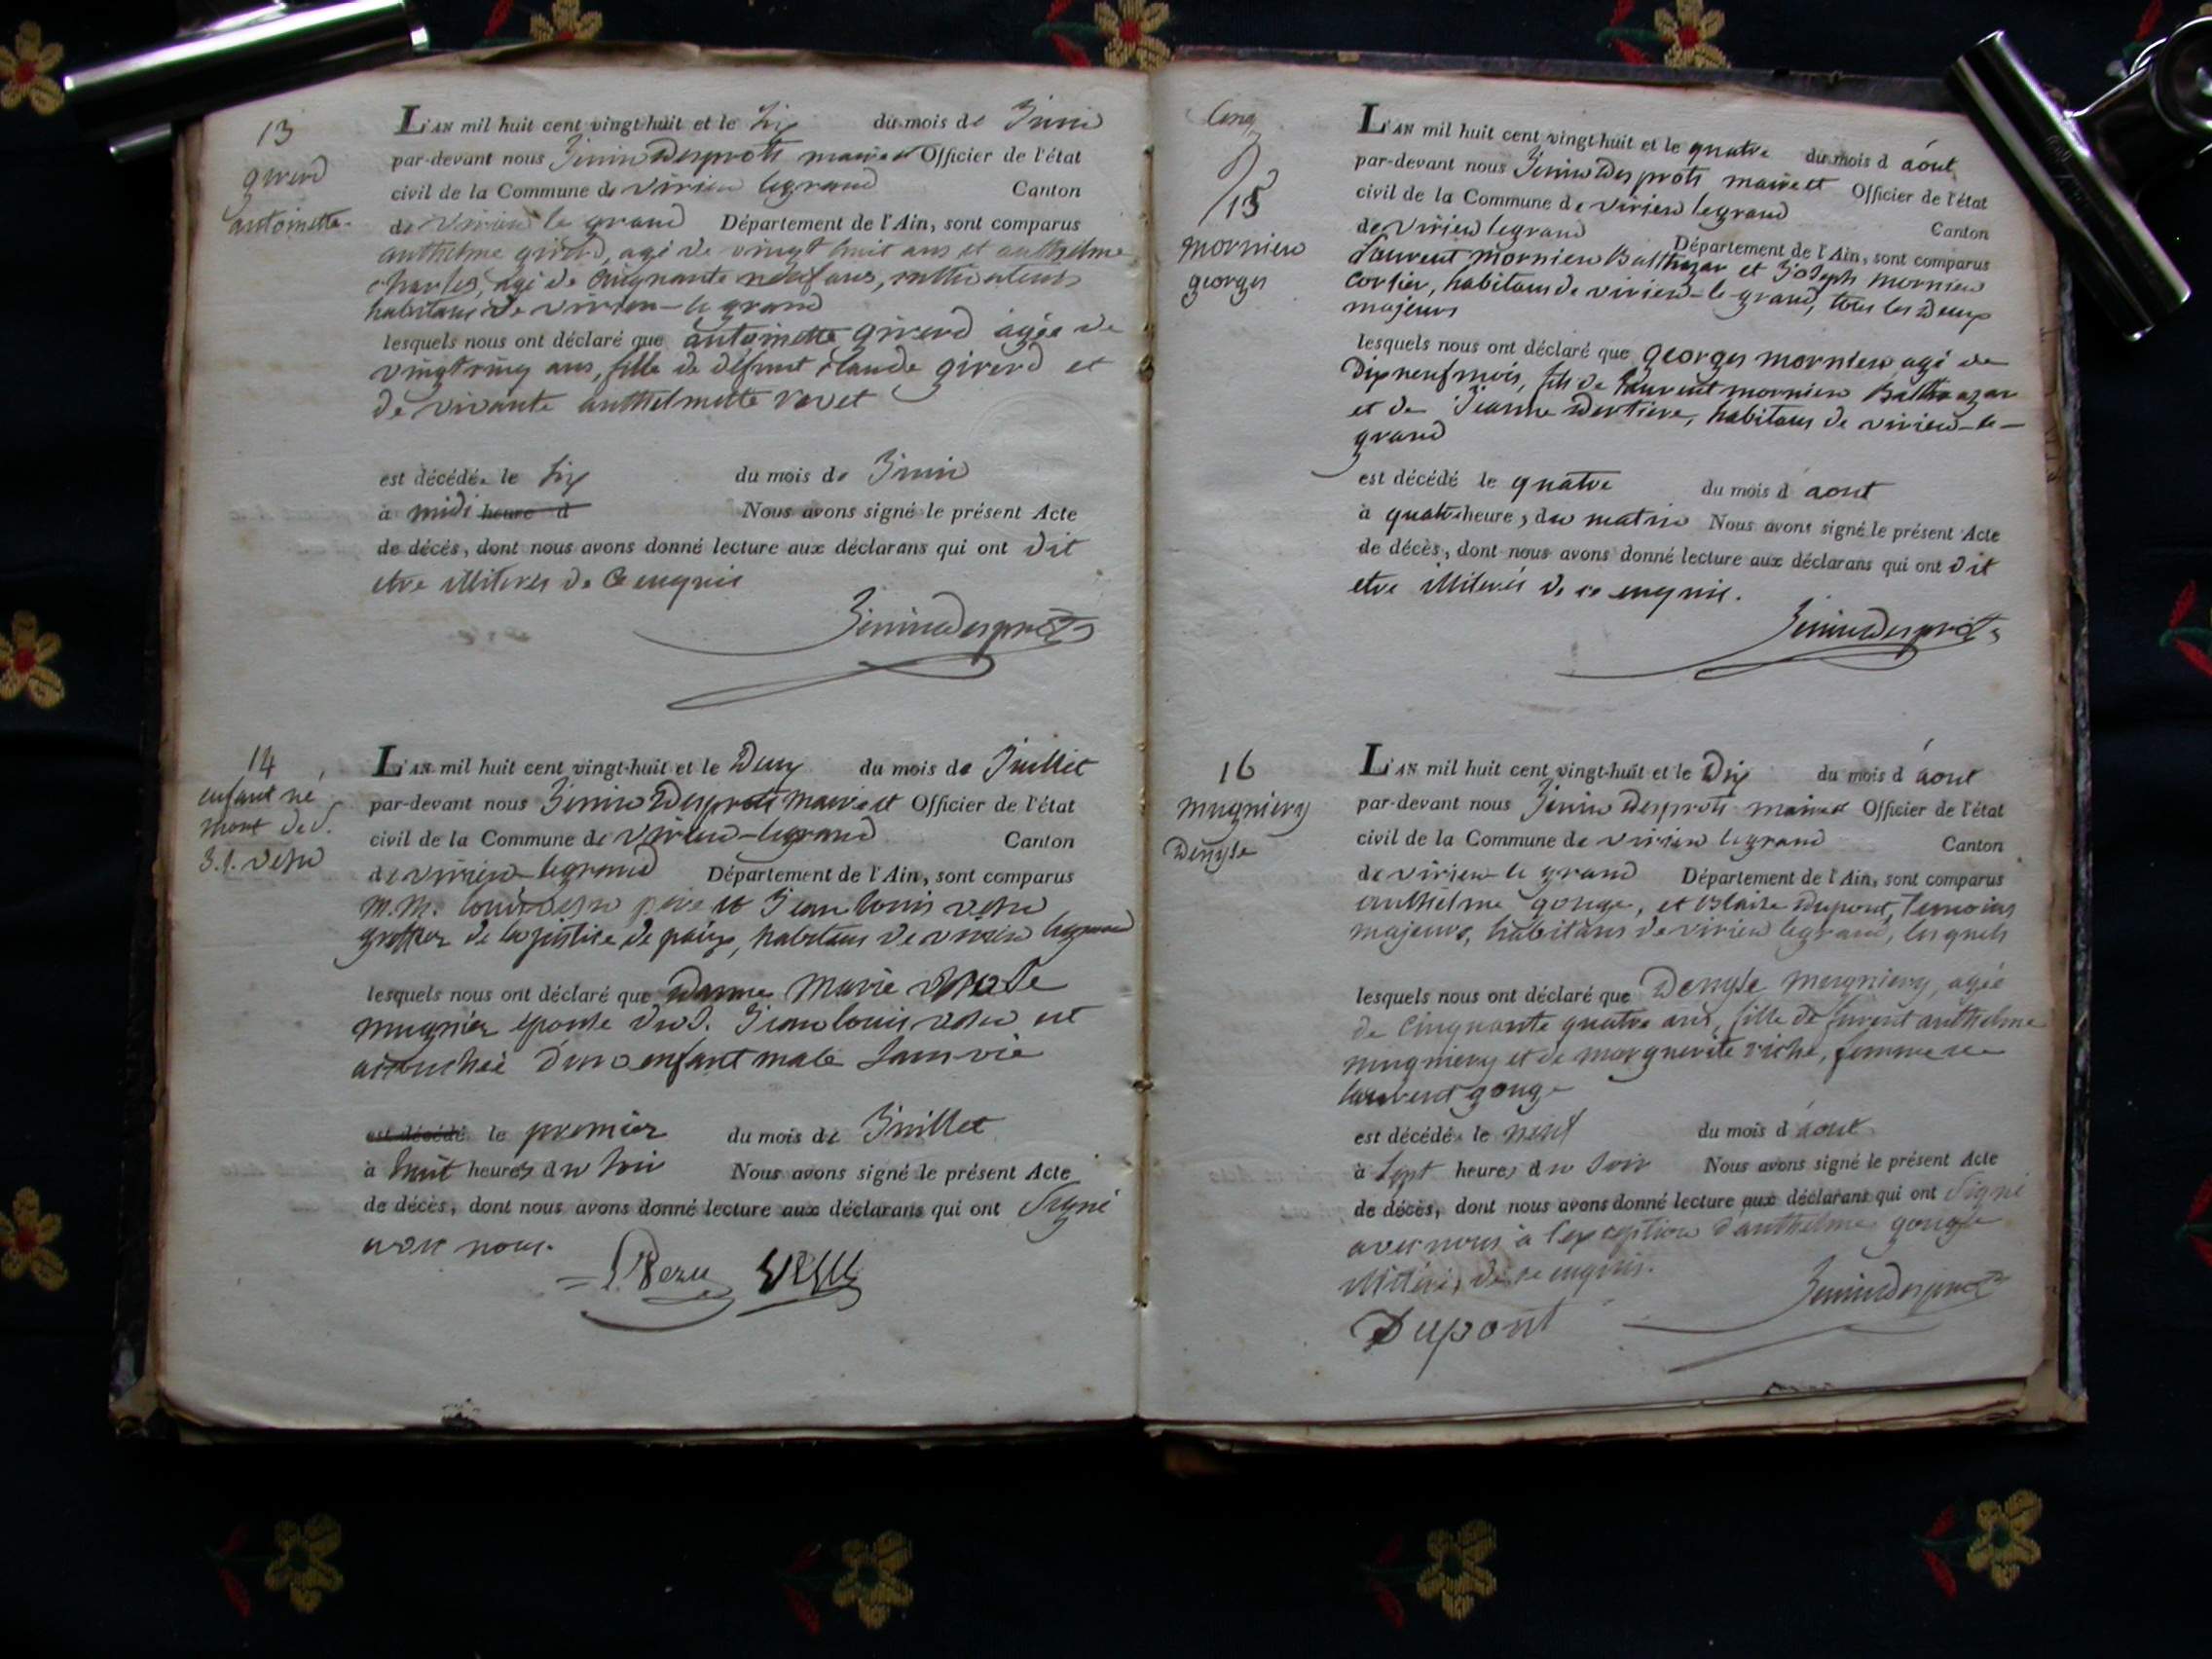 13
girerd
antoinette
L'AN mil huit cent vingt-huit et le six du mois de Juin
par-devant nous Jenin Desprots maire et Officier de l'état
civil de la Commune de virieu legrand Canton
de virieu le grand Département de l'Ain, sont comparus
anthelme girerd, agé de vingt huit ans et anthelme
charles, agé de cinquante neuf ans, cultivateurs
habitans de virieu-le grand
lesquels nous ont déclaré que antoinette girerd agée de
vingt cinq ans, fille de défunt claude girerd et
de vivante anthelmette
est décédée le six du mois de Juin
à midi heure d Nous avons signé le présent Acte
de décès, dont nous avons donné lecture aux déclarans qui ont dit
etre illiterés de ce enquis
Jenin Desprots
14
enfant né
mort de d.
J.L. vezu
L'AN mil huit cent vingt-huit et le Deux du mois de Juillet
par-devant nous Jenin Desprots maire et Officier de l'état
civil de la Commune de virieu-legrand Canton
de virieu-legrand Département de l'Ain, sont comparus
M.M. louis vezu père et Jean louis vezu
greffier de la justice de paix, habitans de virieu legrand
lesquels nous ont déclaré que Dame Marie
mugnier épouse du d. Jean louis vezu est
accouchée d'un enfant male sans vie
est décédé le premier du mois de Juillet
à huit heures du soir Nous avons signé le présent Acte
de décès, dont nous avons donné lecture aux déclarans qui ont signé
avec nous.
L. Vezu Vezu
Cinq
15
mornieu
georges
L'AN mil huit cent vingt-huit et le quatre du mois d août
par-devant nous Jenin Desprots maire et Officier de l'état
civil de la Commune de virieu legrand
de virieu legrand Canton
Département de l'Ain, sont comparus
Laurent mornieu Balthazar et Joseph mornieu
cortier, habitans de virieu-le-grand, tous les deux
majeurs
lesquels nous ont déclaré que georges mornieu agé de
Dix neuf mois, fils de Laurent mornieu Balthazar
et de Jeanne Dertiere, habitans de virieu-le-
grand
est décédé le quatre du mois d août
à quatre heures du matin Nous avons signé le présent Acte
de décès, dont nous avons donné lecture aux déclarans qui ont dit
etre illiterés de ce enquis.
Jenin Desprots
16
mugniery
Denyse
L'AN mil huit cent vingt-huit et le Dix du mois d août
par-devant nous Jenin Desprots maire et Officier de l'état
civil de la Commune de virieu legrand Canton
de virieu le grand Département de l'Ain, sont comparus
anthelme gouge, et Blaise Dupont, temoins
majeurs, habitans de virieu legrand, lesquels
lesquels nous ont déclaré que Denyse mugniery, agée
de cinquante quatre ans, fille de furent anthelme
mugniery et de marguerite riche, femme de
laurent gouge
est décédée le neuf du mois d août
à sept heures du soir Nous avons signé le présent Acte
de décès, dont nous avons donné lecture aux déclarans qui ont signé
avec nous à l'exception d'anthelme gouge
illiteré, de ce enquis.
Jenin Desprots
Dupont